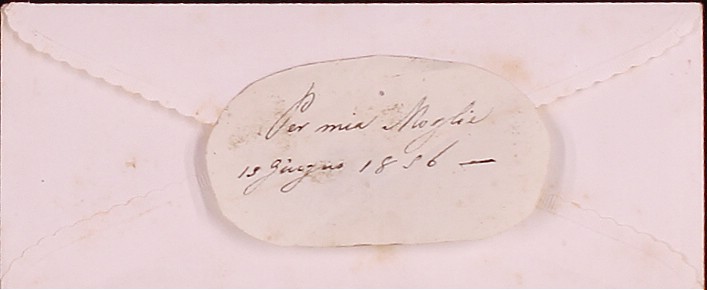 Per mia Moglie
15 Giugno 1856 —